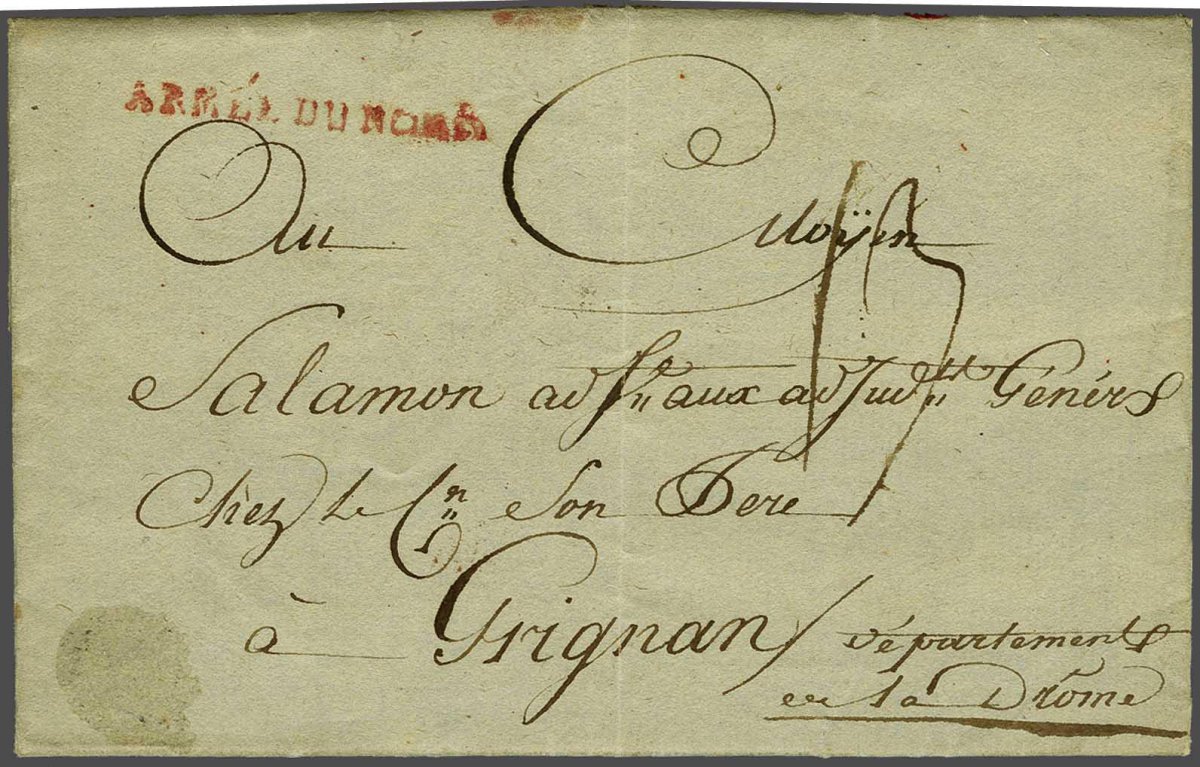 ARMÉE DU NORD
Au Citoÿen
Salamon adj aux adjud Génér
Chez le Cn Son Pere
à Grignan / département
de la Drôme